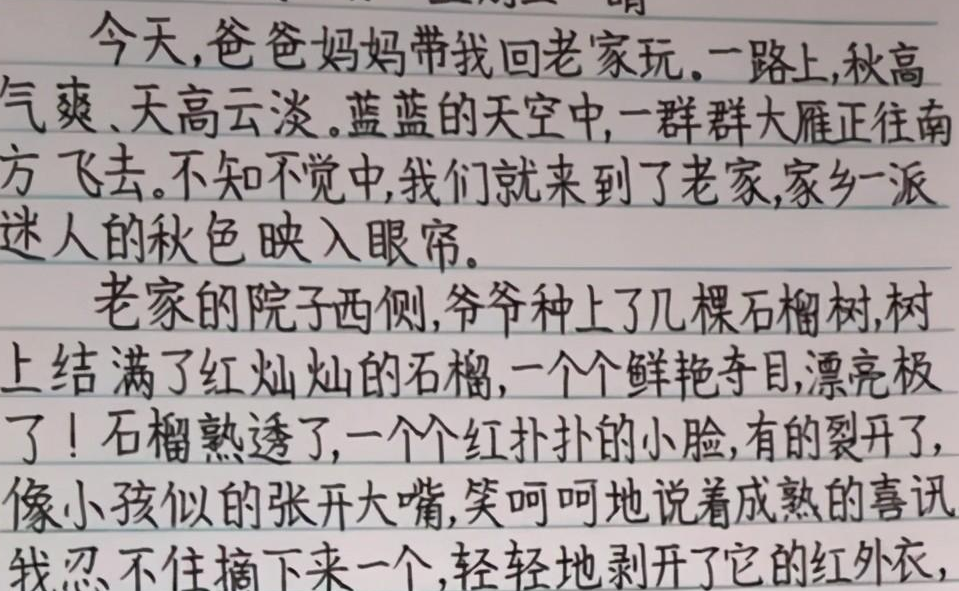 晴
今天,爸爸妈妈带我回老家玩。一路上,秋高
气爽、天高云淡。蓝蓝的天空中,一群群大雁正往南
方飞去。不知不觉中,我们就来到了老家,家乡一派
迷人的秋色映入眼帘。
老家的院子西侧,爷爷种上了几棵石榴树,树
上结满了红灿灿的石榴,一个个鲜艳夺目,漂亮极
了!石榴熟透了,一个个红扑扑的小脸,有的裂开了,
像小孩似的张开大嘴,笑呵呵地说着成熟的喜讯
我忍不住摘下来一个,轻轻地剥开了它的红外衣,